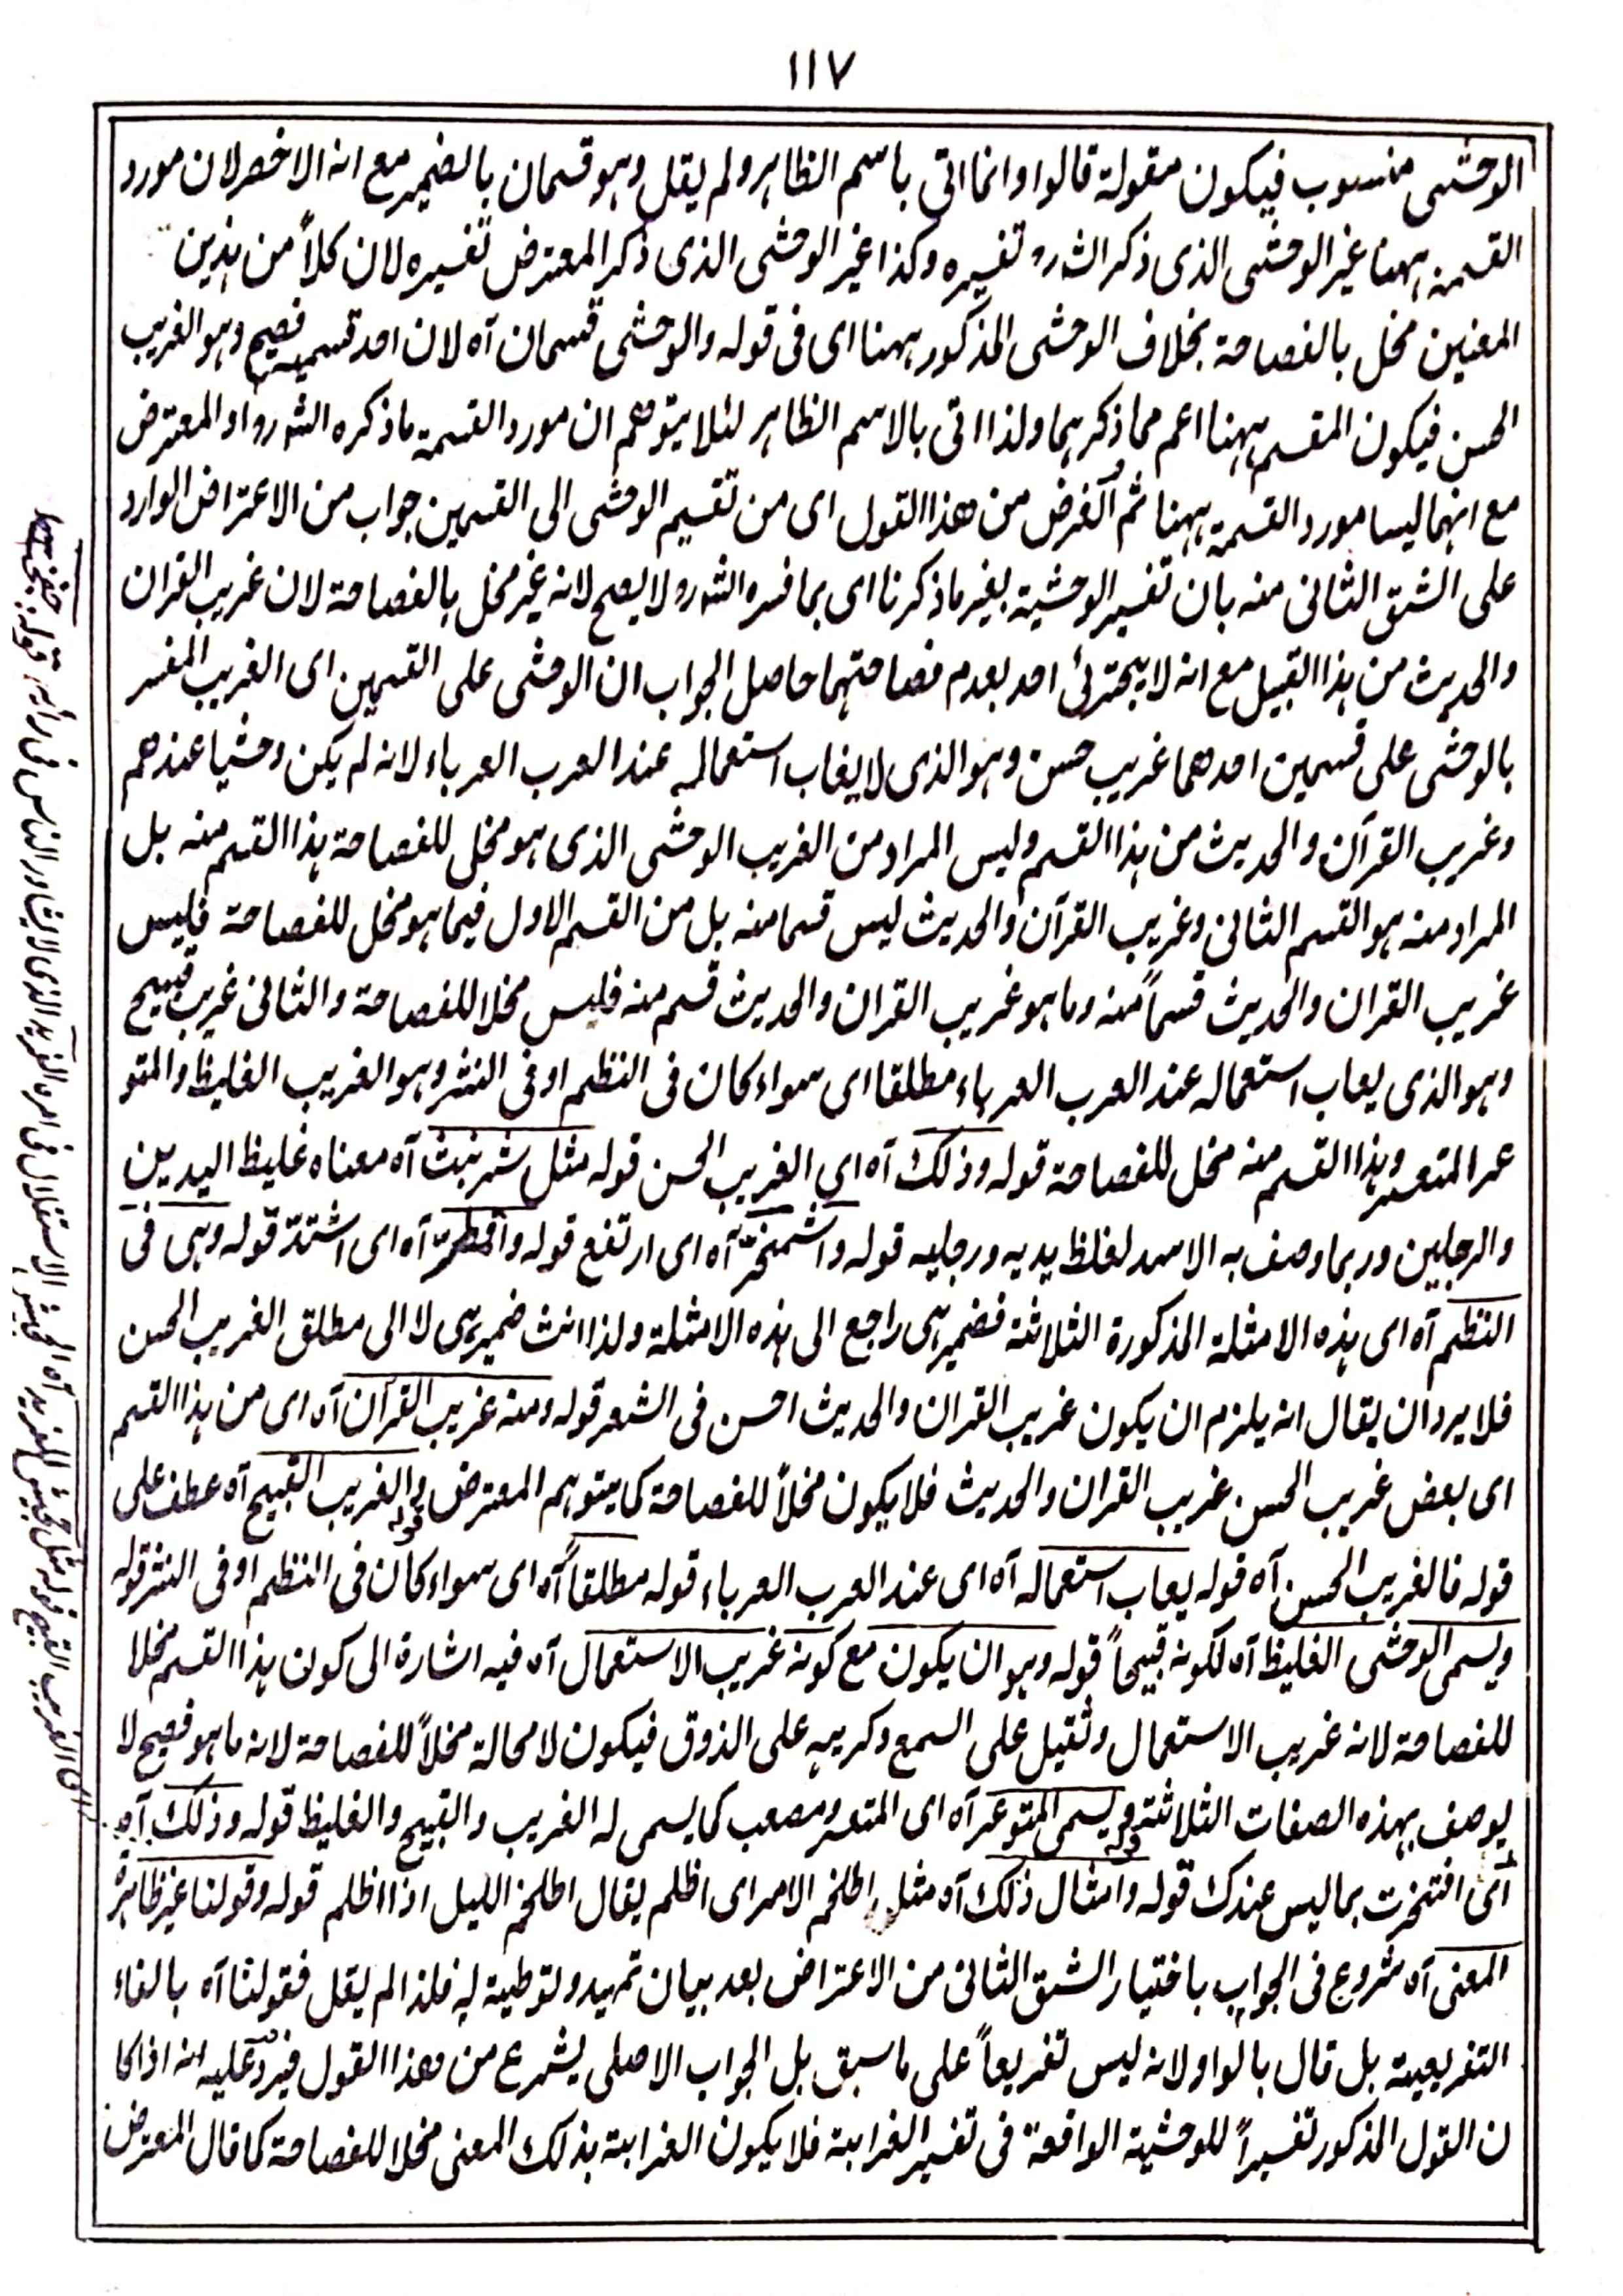 ١١٧
الوحشى منسوب فيكون مقولة قالوا وانما اتى باسم الظاهر ولم يقل وهو قسمان بالضمير مع انه الاخصر لان مورد
القسمة ههنا غير الوحشى الذى ذكر الشرو تفسيره وكذا غير الوحشى الذى ذكر المعترض تفسيره لان كلاً من هذين
المعنين مخل بالفصاحة بخلاف الوحشى المذكور ههنا اى فى قوله والوحشى قسمان آه لان احد قسميه فصيح وهو الغريب
الحسن فيكون المقسم ههنا اعم مما ذكرهما ولذا اتى بالاسم الظاهر لئلا يتوهم ان مورد القسمة ما ذكره الشرو او المعترض
مع انهما ليسا مورد القسمة ههنا ثم الغرض من هذا القول اى من تقسيم الوحشى الى القسمين جواب من الاعتراض الوارد
على الشق الثانى منه بان تفسير الوحشية بغير ما ذكرنا اى بما فسره الشرو لا يصح لانه غير مخل بالفصاحة لان غريب القران
والحديث من هذا القبيل مع انه لا يجترئ احد بعدم فصاحتهما حاصل الجواب ان الوحشى على القسمين اى الغريب المفسر
بالوحشى على قسمين احدهما غريب حسن وهو الذى لا يعاب استعماله عند العرب العرباء لانه لم يكن وحشيا عندهم
وغريب القرآن والحديث من هذا القسم وليس المراد من الغريب الوحشى الذى هو مخل للفصاحة هذا القسم منه بل
المراد منه هو القسم الثانى وغريب القرآن والحديث ليس قسما منه بل من القسم الاول فيما هو مخل للفصاحة فليس
غريب القران والحديث قسماً منه وما هو غريب القران والحديث قسم منه فليس مخلا للفصاحة والثانى غريب قبيح
وهو الذى يعاب استعماله عند العرب العرباء مطلقا اى سواء كان فى النظم او فى النثر وهو الغريب الغليظ والمتو
عر المتعسر وهذا القسم منه مخل للفصاحة قوله وذلك آه اى الغريب الحسن قوله مثل شرنبث آه معناه غليظ اليدين
والرجلين وربما وصف به الاسد لغلظ يديه ورجليه قوله واشمخرّ آه اى ارتفع قوله واقمطرّ آه اى اشتدّ قوله وهى فى
النظم آه اى هذه الامثلة المذكورة الثلاثة فضمير هى راجع الى هذه الامثلة ولذا انث ضمير هى لا الى مطلق الغريب الحسن
فلا يرد ان يقال انه يلزم ان يكون غريب القران والحديث احسن فى الشعر قوله ومنه غريب القرآن آه اى من هذا القسم
اى بعض غريب الحسن غريب القران والحديث فلا يكون مخلاً للفصاحة كما يتوهم المعترض قوله والغريب القبيح آه عطف على
قوله فالغريب الحسن آه قوله يعاب استعماله آه اى عند العرب العرباء قوله مطلقاً آه اى سواء كان فى النظم او فى النثر قوله
ويسمى الوحشى الغليظ آه لكونه قبيحاً قوله وهو ان يكون مع كونه غريب الاستعمال آه فيه اشارة الى كون هذا القسم مخلا
للفصاحة لانه غريب الاستعمال وثقيل على السمع وكريه على الذوق فيكون لا محالة مخلاً للفصاحة لانه ما هو فصيح لا
يوصف بهذه الصفات الثلاثة قوله ويسمى المتوعر آه اى المتعسر ومصعب كما يسمى له الغريب والقبيح والغليظ قوله وذلك آه
اى افتخرت بما ليس عندك قوله وامثال ذلك آه مثل اطلخم الامر اى اظلم يقال اطلخم الليل اذا اظلم قوله وقولنا غير ظاهرة
المعنى آه شروع فى الجواب باختيار الشق الثانى من الاعتراض بعد بيان تمهيد وتوطية له فلذا لم يقل فقولنا آه بالفاء
التفريعية بل قال بالواو لانه ليس تفريعاً على ما سبق بل الجواب الاصلى يشرع من هذا القول فيرد عليه انه اذا كا
ن القول المذكور تفسيراً للوحشية الواقعة فى تفسير الغرابة فلا يكون الغرابة بذلك المعنى مخلا للفصاحة كما قال المعترض